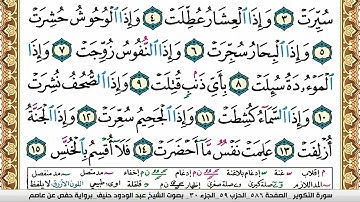 سُيِّرَتْ ٣ وَإِذَا ٱلْعِشَارُ عُطِّلَتْ ٤ وَإِذَا ٱلْوُحُوشُ حُشِرَتْ
٥ وَإِذَا ٱلْبِحَارُ سُجِّرَتْ ٦ وَإِذَا ٱلنُّفُوسُ زُوِّجَتْ ٧ وَإِذَا
ٱلْمَوْءُۥدَةُ سُئِلَتْ ٨ بِأَىِّ ذَنۢبٍ قُتِلَتْ ٩ وَإِذَا ٱلصُّحُفُ نُشِرَتْ
١٠ وَإِذَا ٱلسَّمَآءُ كُشِطَتْ ١١ وَإِذَا ٱلْجَحِيمُ سُعِّرَتْ ١٢ وَإِذَا ٱلْجَنَّةُ
أُزْلِفَتْ ١٣ عَلِمَتْ نَفْسٌ مَّآ أَحْضَرَتْ ١٤ فَلَآ أُقْسِمُ بِٱلْخُنَّسِ ١٥
سورة التكوير الصفحة ٥٨٦ الحزب ٥٩ الجزء ٣٠ بصوت الشيخ عبد الودود حنيف برواية حفص عن عاصم